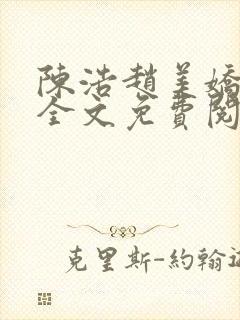 陳浩趙美嬌
全文免費閱
克里斯-約翰遜